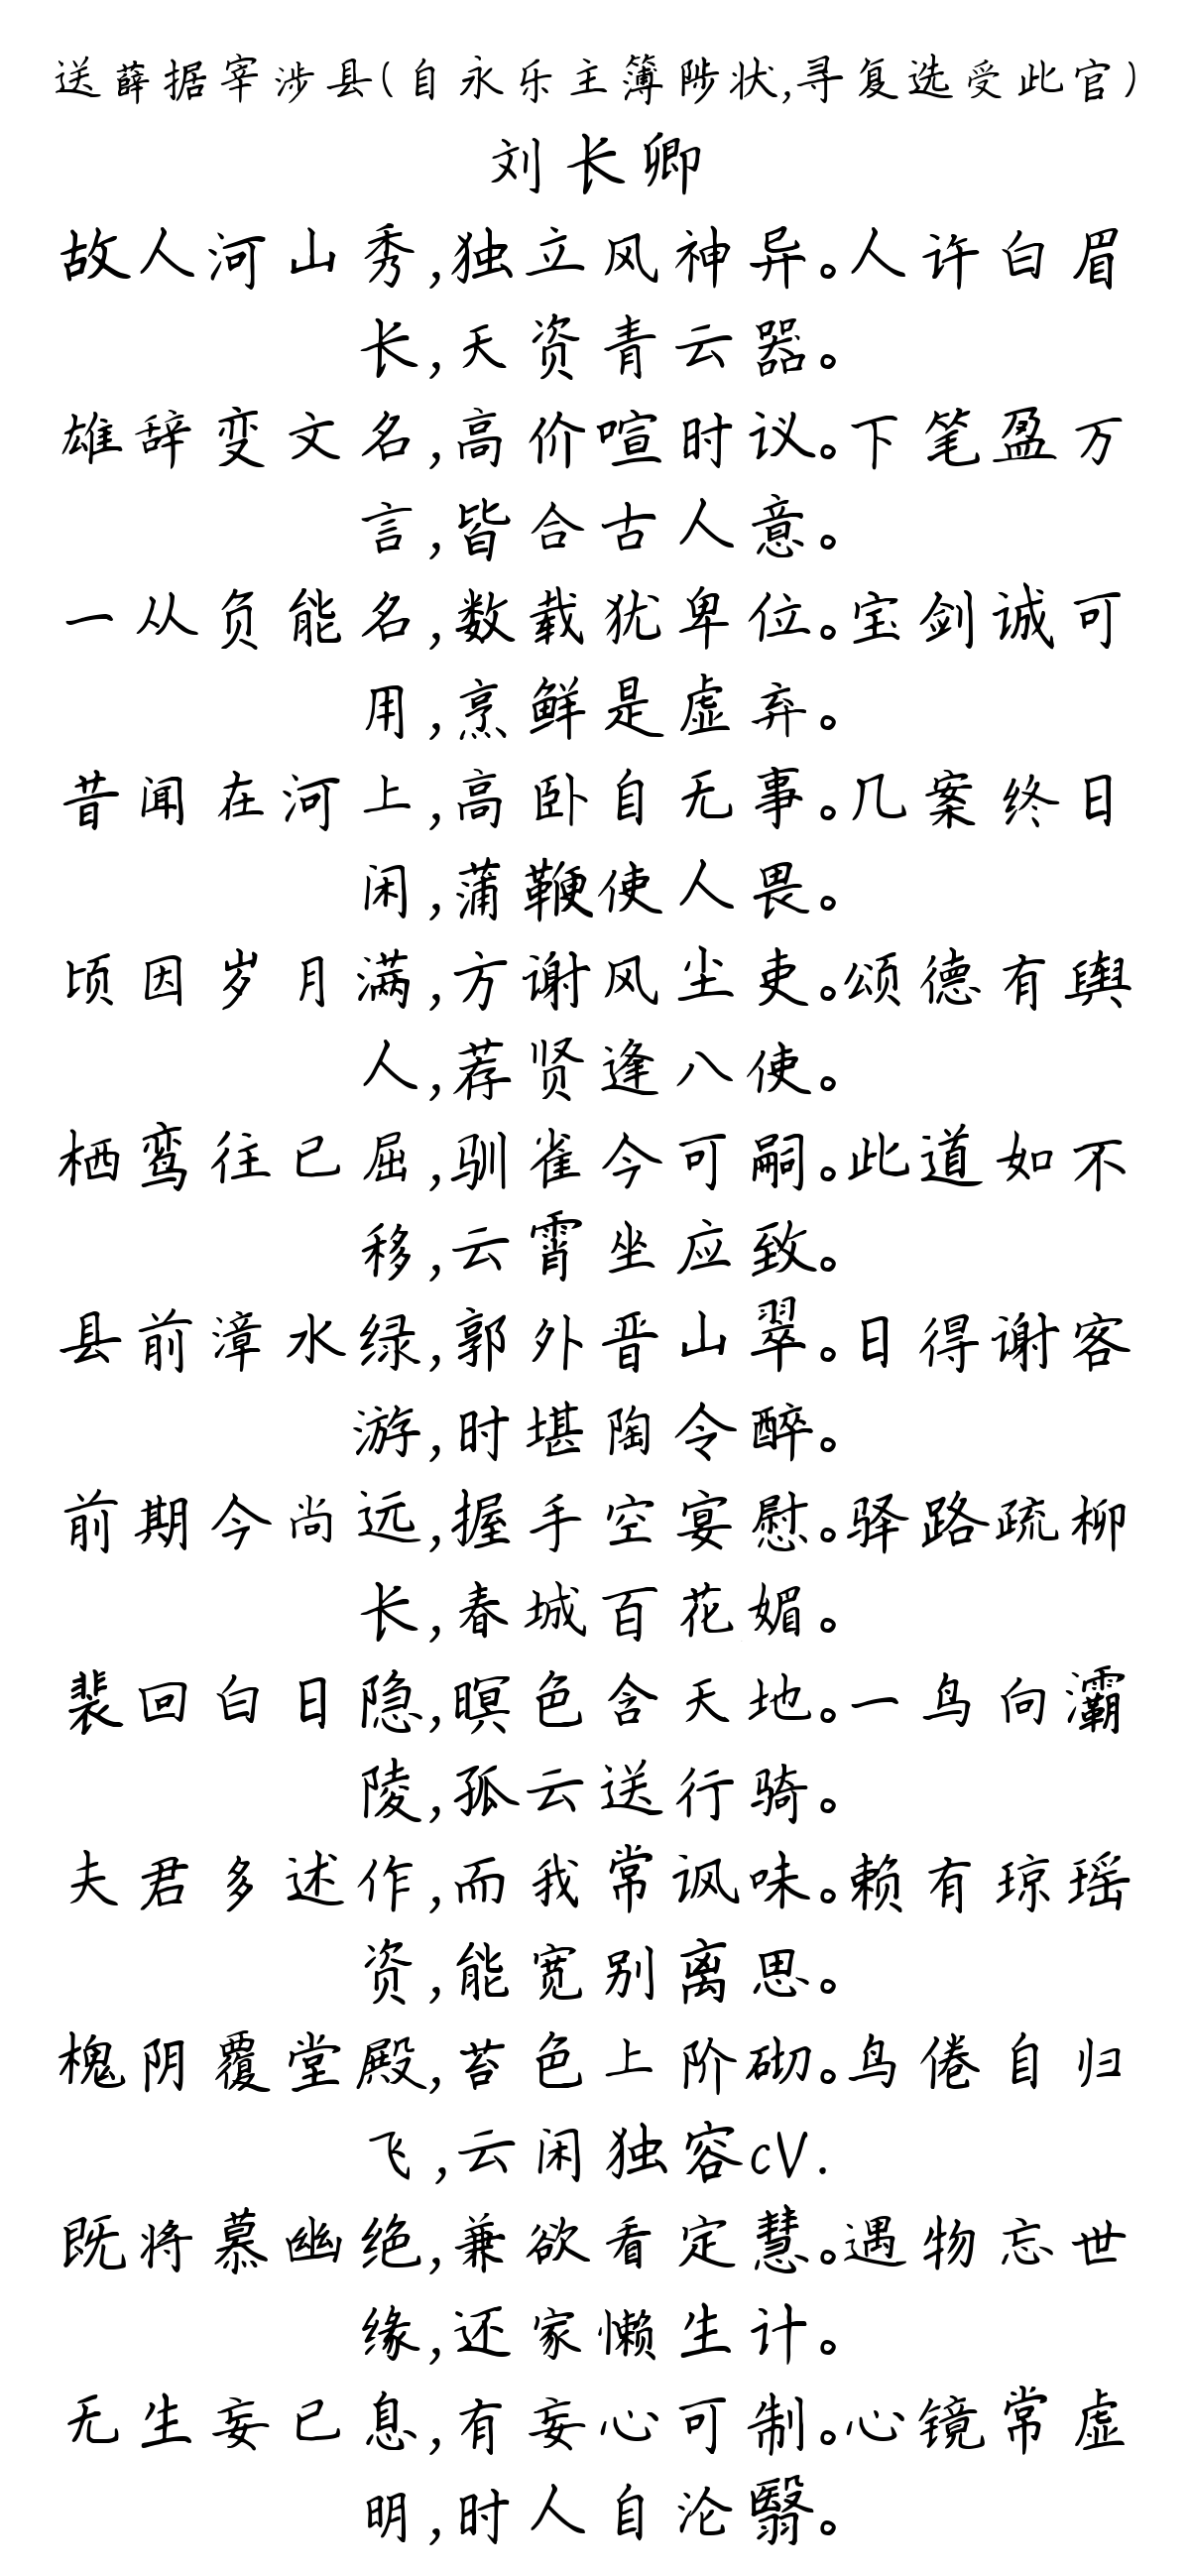 送薛据宰涉县(自永乐主簿陟状,寻复选受此官)
刘长卿
故人河山秀,独立风神异。人许白眉
长,天资青云器。
雄辞变文名,高价喧时议。下笔盈万
言,皆合古人意。
一从负能名,数载犹卑位。宝剑诚可
用,烹鲜是虚弃。
昔闻在河上,高卧自无事。几案终日
闲,蒲鞭使人畏。
顷因岁月满,方谢风尘吏。颂德有舆
人,荐贤逢八使。
栖鸾往已屈,驯雀今可嗣。此道如不
移,云霄坐应致。
县前漳水绿,郭外晋山翠。日得谢客
游,时堪陶令醉。
前期今尚远,握手空宴慰。驿路疏柳
长,春城百花媚。
裴回白日隐,暝色含天地。一鸟向灞
陵,孤云送行骑。
夫君多述作,而我常讽味。赖有琼瑶
资,能宽别离思。
槐阴覆堂殿,苔色上阶砌。鸟倦自归
飞,云闲独容cV.
既将慕幽绝,兼欲看定慧。遇物忘世
缘,还家懒生计。
无生妄已息,有妄心可制。心镜常虚
明,时人自沦翳。